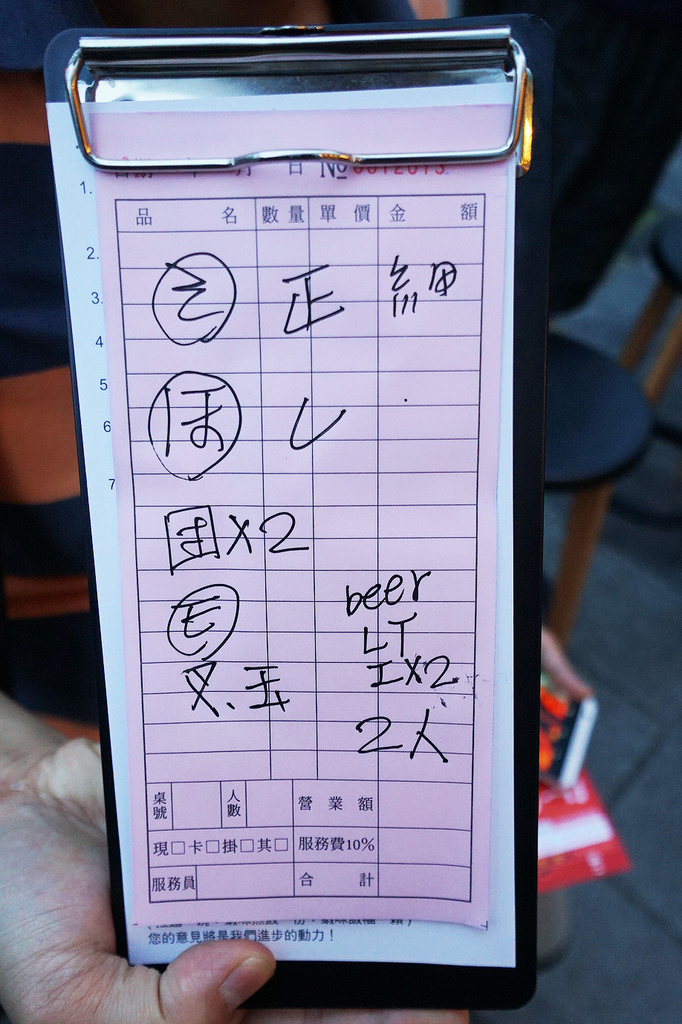 日 No 0012013
1.
品 名 數 量 單 價 金 額
2.
3.
4
5
6
7
正 細
ほ し
X2
beer
モ
LT
又、玉 エX2
2人
桌號 人數 營 業 額
現□卡□掛□其□ 服務費10%
服務員 合 計
您的意見將是我們進步的動力！